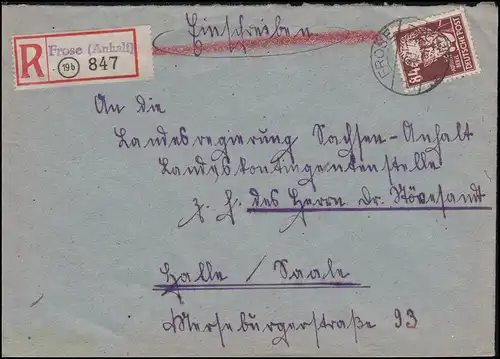 Einschreiben.
R Frose (Anhalt)
19b 847
FROSE
84
DEUTSCHE POST
An die
Landesregierung Sachsen-Anhalt
Landeskontingentenstelle
z. H. des Herrn Dr. Stövesandt
Halle / Saale
Merseburgerstraße 93